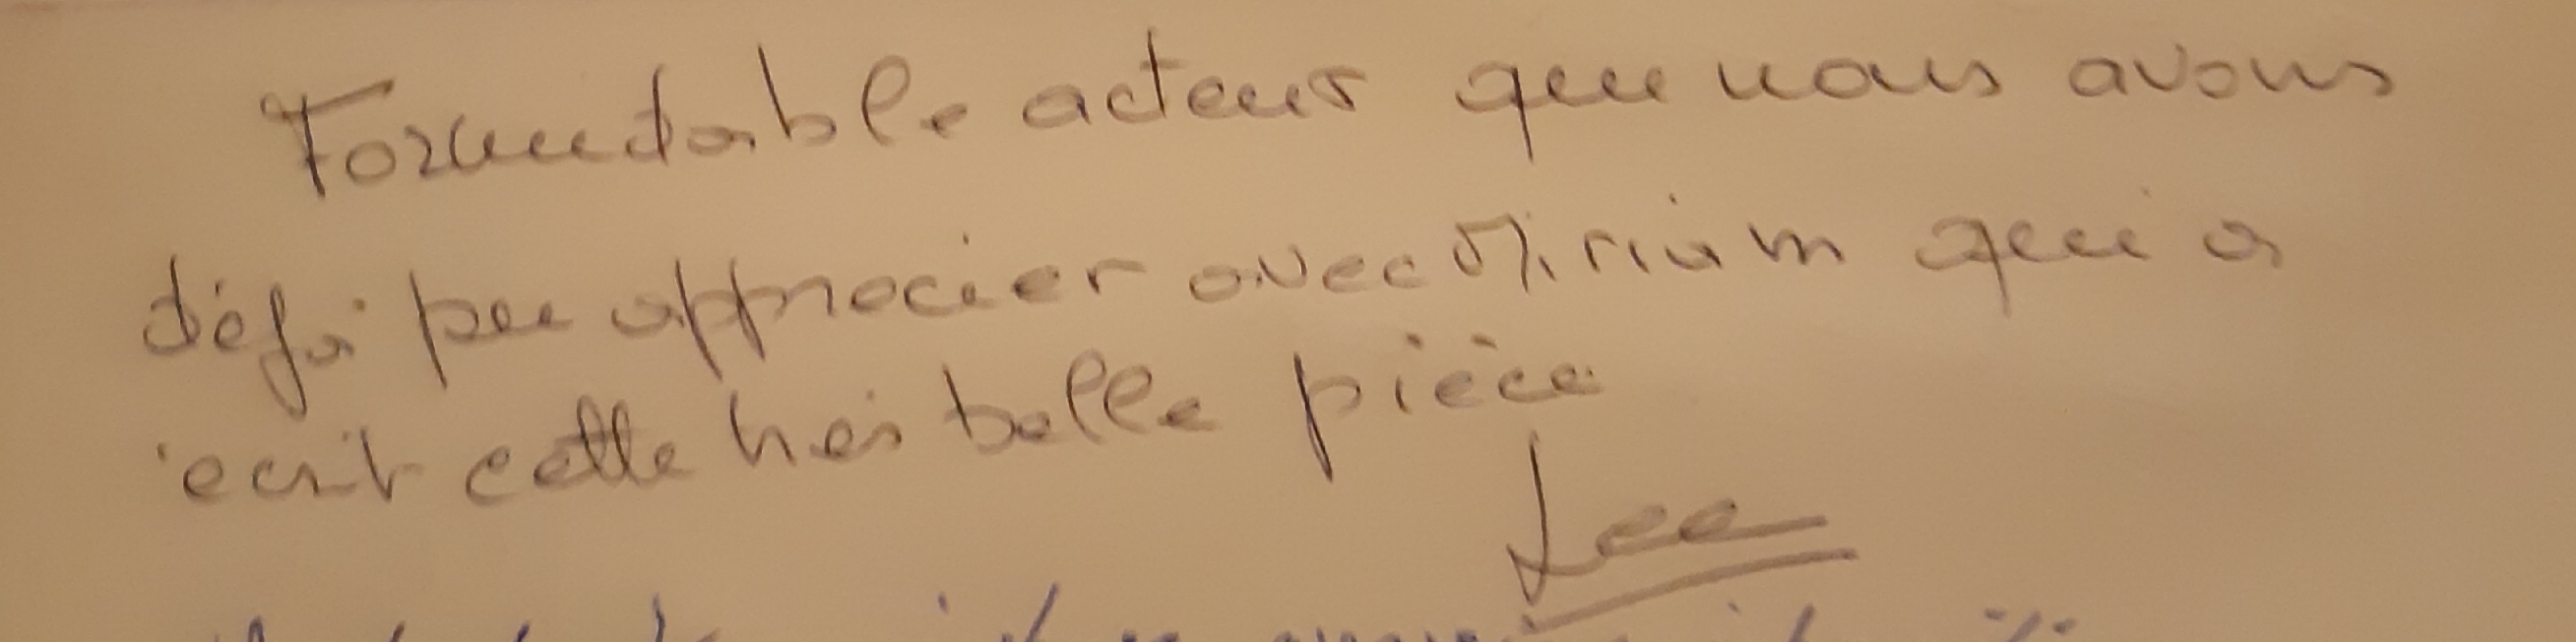 Formidable acteur que nous avons
déjà pu apprecier avec Miriam qui a
ecrit cette très belle pièce
Lee